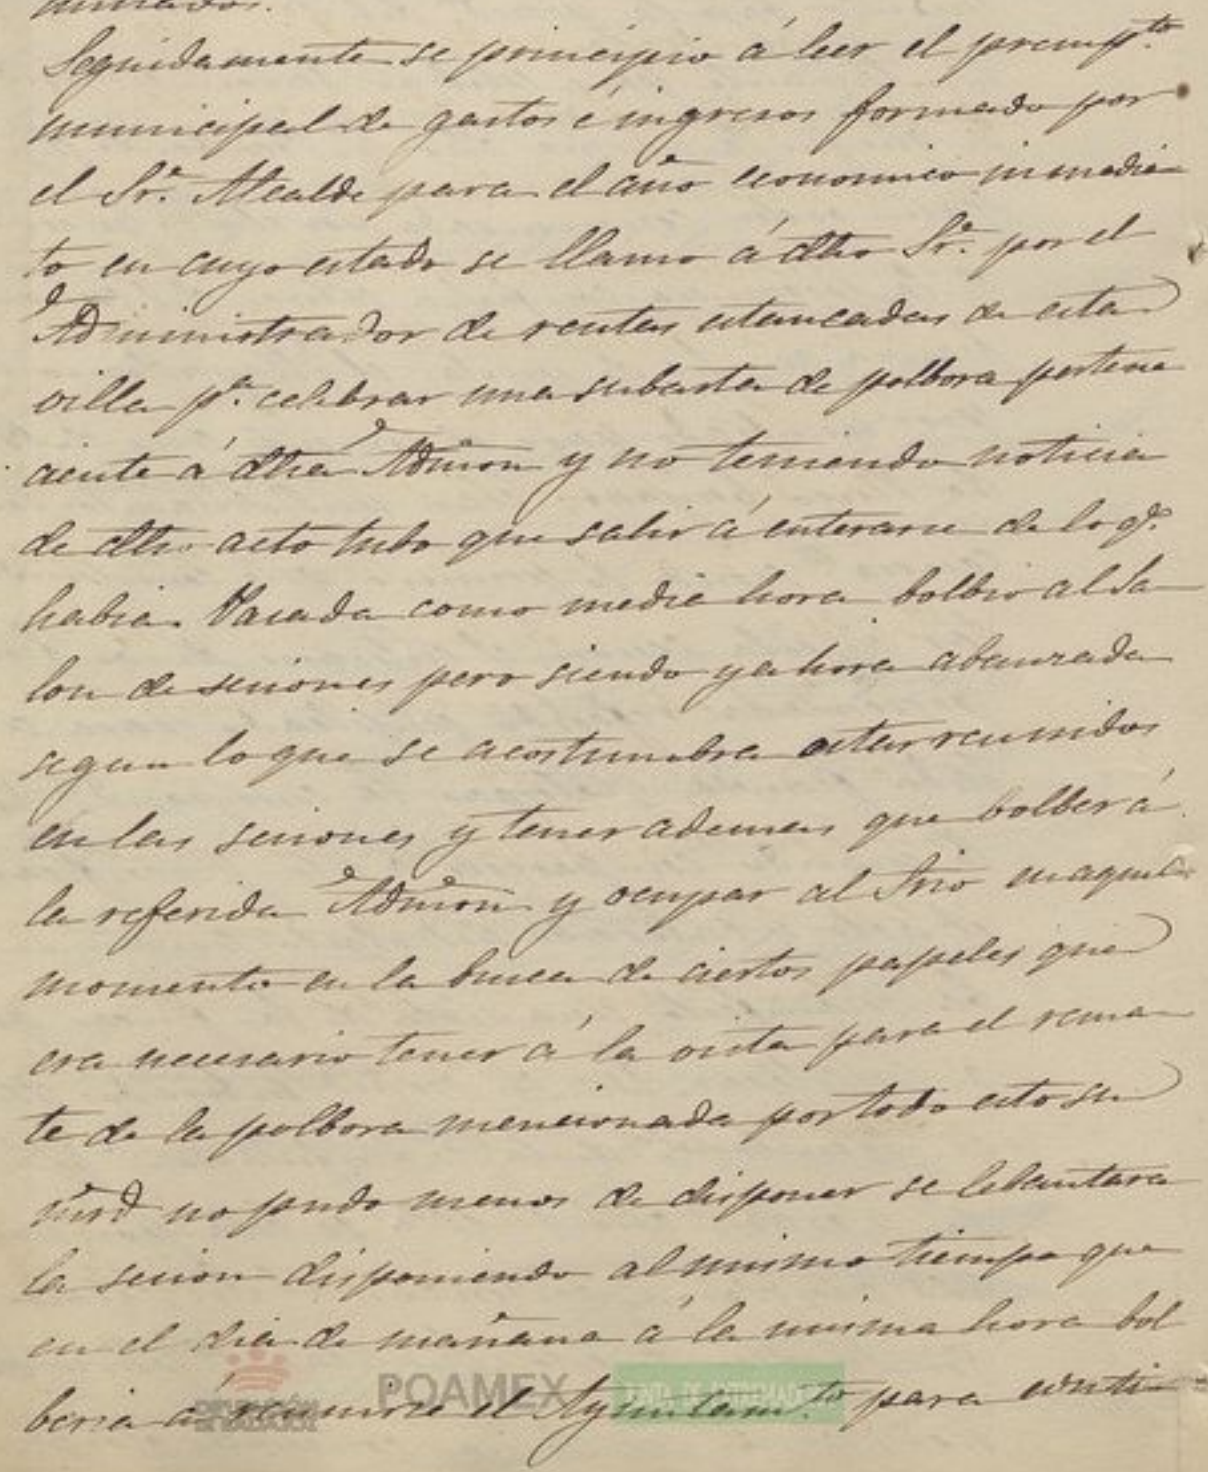 minados.
Seguidamente se principio á leer el presupto
municipal de gastos é ingresos formado por
el Sr. Alcalde para el año economico inmedia
to en cuyo estado se llamo á dho Sr. por el
Administrador de rentas estancadas de esta
villa pa. celebrar una subasta de polbora pertene
ciente á dha Admon y no teniendo noticia
de dho acto tubo que salir á enterarse de lo qe.
habia. Pasada como media hora bolbio al Sa
lon de sesiones pero siendo ya hora abanzada
segun lo que se acostumbra estar reunidos
en las sesiones y tener ademas que bolber á
la referida Admon y ocupar al Srio en aquel
momento en la busca de ciertos papeles que
era necesario tener á la vista para el rema
te de la polbora mencionada por todo esto su
mrd no pudo menos de disponer se lebantara
la sesion disponiendo al mismo tiempo que
en el dia de mañana á la misma hora bol
beria á reunirse el Ayuntamto para conti
POAMEX